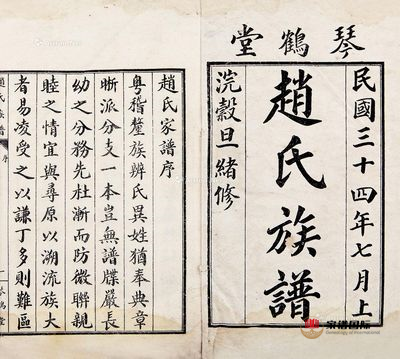 琴鶴堂
民國三十四年七月上
趙氏族譜
浣穀旦緒修
趙氏家譜序
粵稽釐族辨氏異姓猶奉典章
晰派分支一本豈無譜牒嚴長
幼之分務先杜漸而防微聯親
睦之情宜與尋原以溯流族大
者易凌受之以謙丁多則難區
趙氏族譜
序
一
琴鶴堂
家谱国际